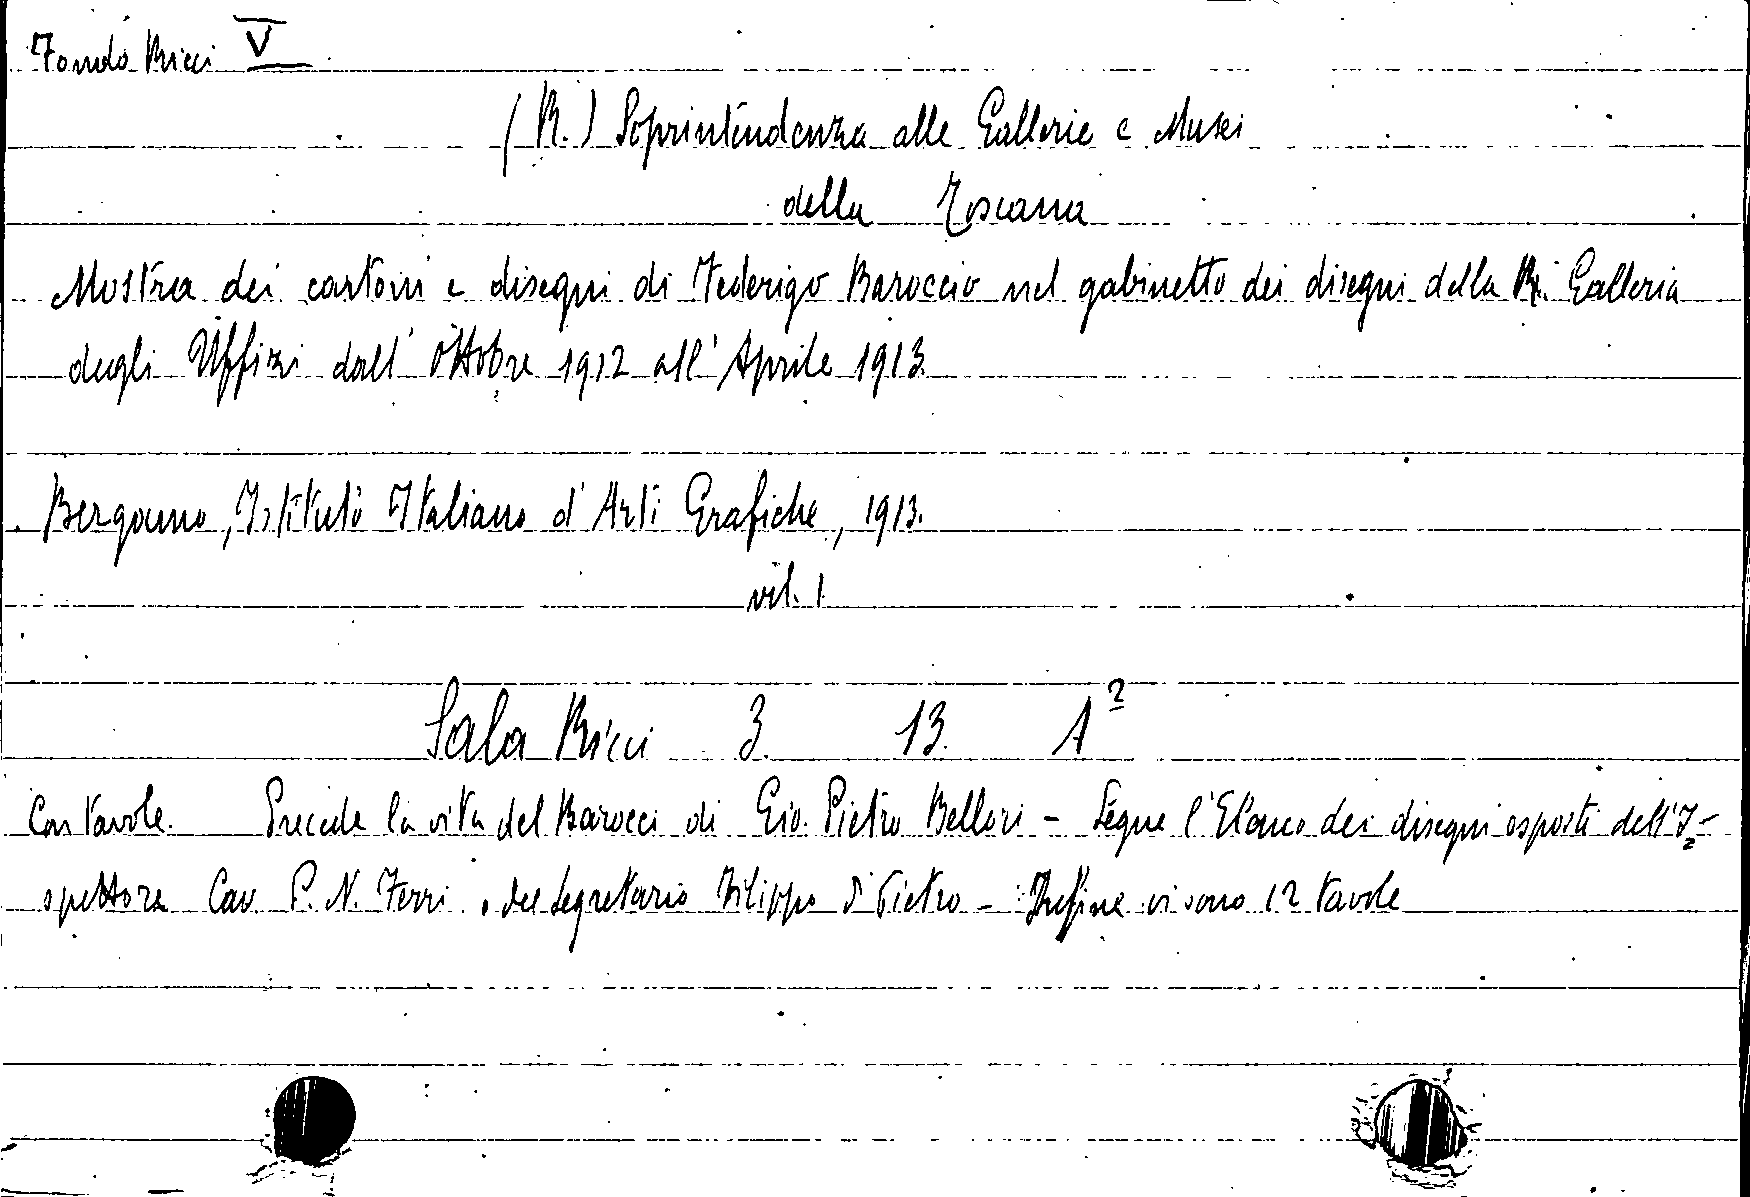 Fondo Ricci V
(R.) Soprintendenza alle Gallerie e Musei
della Toscana
Mostra dei cartoni e disegni di Federigo Baroccio nel gabinetto dei disegni della R. Galleria
degli Uffizi dall' Ottobre 1912 all' Aprile 1913
Bergamo, Istituto Italiano d'Arti Grafiche, 1913.
vol. 1
Sala Ricci 3. 13. A²
Con tavole. Precede la vita del Barocci di Gio. Pietro Bellori - Segue l'Elenco dei disegni esposti dell'I-
spettore Cav. P. N. Ferri e del Segretario Filippo di Pietro - Infine vi sono 12 tavole